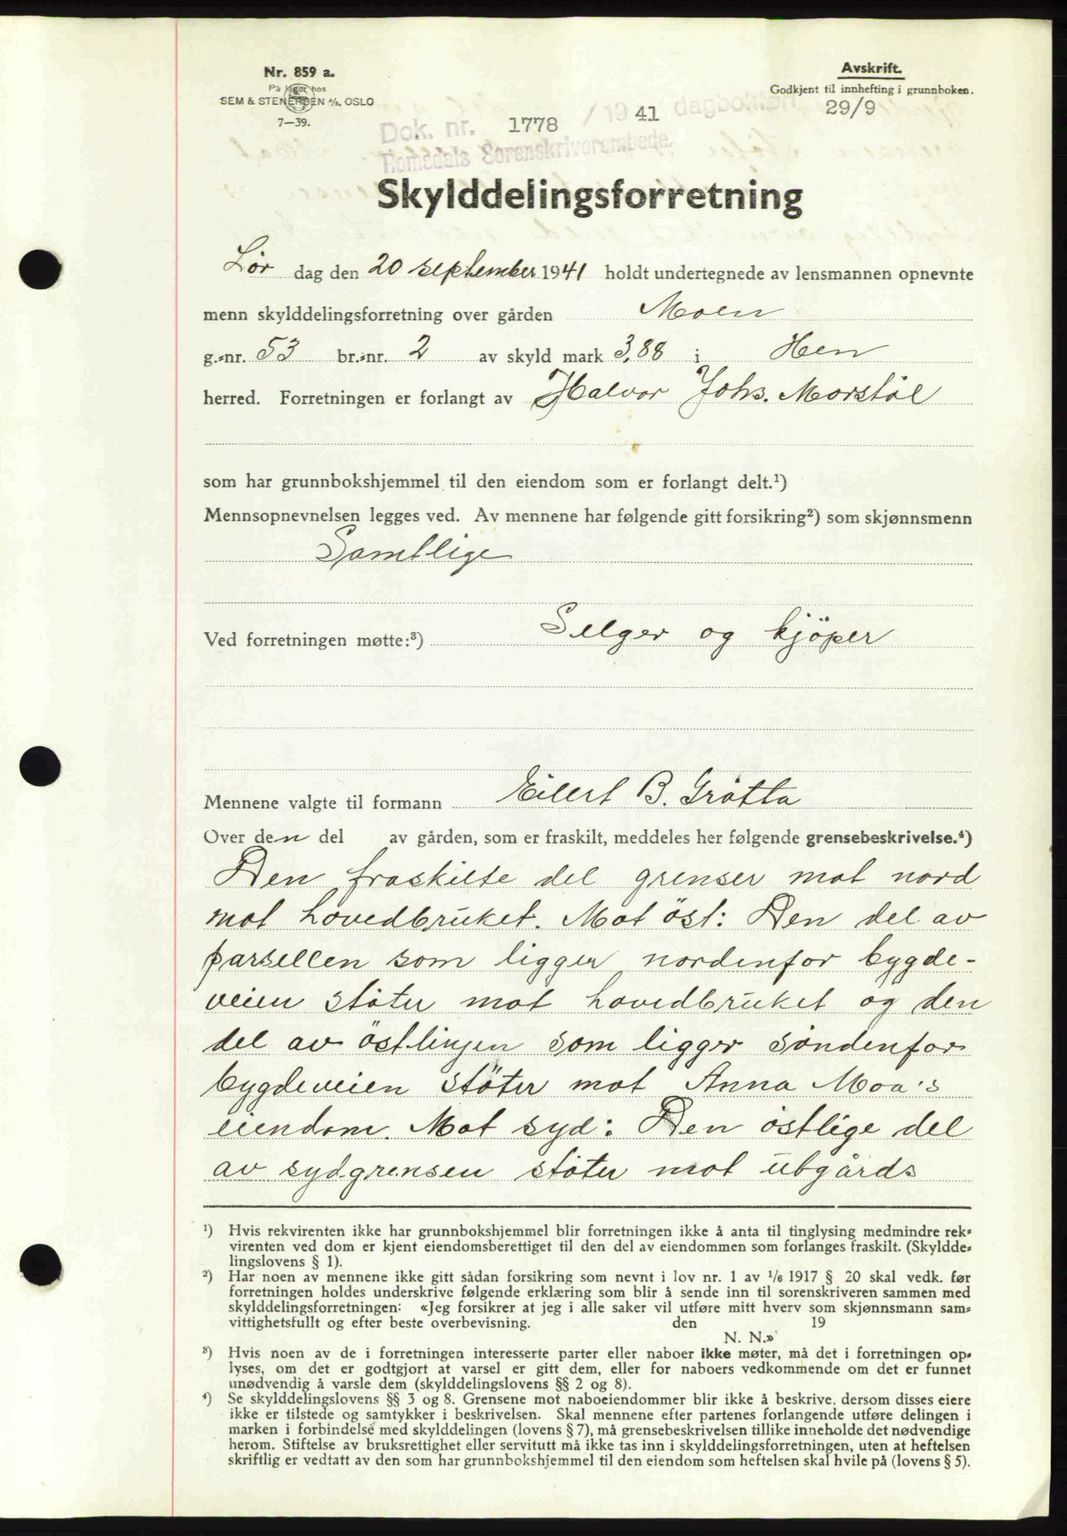 Nr. 859 a.
På lager hos
SEM & STENERSEN A/S. OSLO
7—39.
Avskrift.
Godkjent til innhefting i grunnboken.
29/9
Dok. nr. 1778 / 19 41 dagboken
Romsdals Sorenskriverembede
Skylddelingsforretning
Lør dag den 20 september 1941 holdt undertegnede av lensmannen opnevnte
menn skylddelingsforretning over gården Moen
g.-nr. 53 br.-nr. 2 av skyld mark 3,88 i Hen
herred. Forretningen er forlangt av Halvor Johs. Morstöl
som har grunnbokshjemmel til den eiendom som er forlangt delt.¹)
Mennsopnevnelsen legges ved. Av mennene har følgende gitt forsikring²) som skjønnsmenn
Samtlige
Ved forretningen møtte:³) Selger og kjöper
Mennene valgte til formann Eilert B. Grötta
Over den del av gården, som er fraskilt, meddeles her følgende grensebeskrivelse.⁴)
Den fraskilte del grenser mot nord
mot hovedbruket. Mot öst: Den del av
parsellen som ligger nordenfor bygde-
veien stöter mot hovedbruket og den
del av östlinjen som ligger söndenfor
bygdeveien stöter mot Anna Moa's
eiendom. Mot syd: Den östlige del
av sydgrensen stöter mot utgårds
¹) Hvis rekvirenten ikke har grunnbokshjemmel blir forretningen ikke å anta til tinglysing medmindre rek-
virenten ved dom er kjent eiendomsberettiget til den del av eiendommen som forlanges fraskilt. (Skyldde-
lingslovens § 1).
²) Har noen av mennene ikke gitt sådan forsikring som nevnt i lov nr. 1 av 1/6 1917 § 20 skal vedk. før
forretningen holdes underskrive følgende erklæring som blir å sende inn til sorenskriveren sammen med
skylddelingsforretningen: «Jeg forsikrer at jeg i alle saker vil utføre mitt hverv som skjønnsmann sam-
vittighetsfullt og efter beste overbevisning. den 19
N. N.»
³) Hvis noen av de i forretningen interesserte parter eller naboer ikke møter, må det i forretningen op-
lyses, om det er godtgjort at varsel er gitt dem, eller for naboers vedkommende om det er funnet
unødvendig å varsle dem (skylddelingslovens §§ 2 og 8).
⁴) Se skylddelingslovens §§ 3 og 8. Grensene mot naboeiendommer blir ikke å beskrive, dersom disses eiere
ikke er tilstede og samtykker i beskrivelsen. Skal mennene efter partenes forlangende utføre delingen i
marken i forbindelse med skylddelingen (lovens § 7), må grensebeskrivelsen tillike inneholde det nødvendige
herom. Stiftelse av bruksrettighet eller servitutt må ikke tas inn i skylddelingsforretningen, uten at heftelsen
skriftlig er vedtatt av den som har grunnbokshjemmel til den eiendom som heftelsen skal hvile på (lovens § 5).